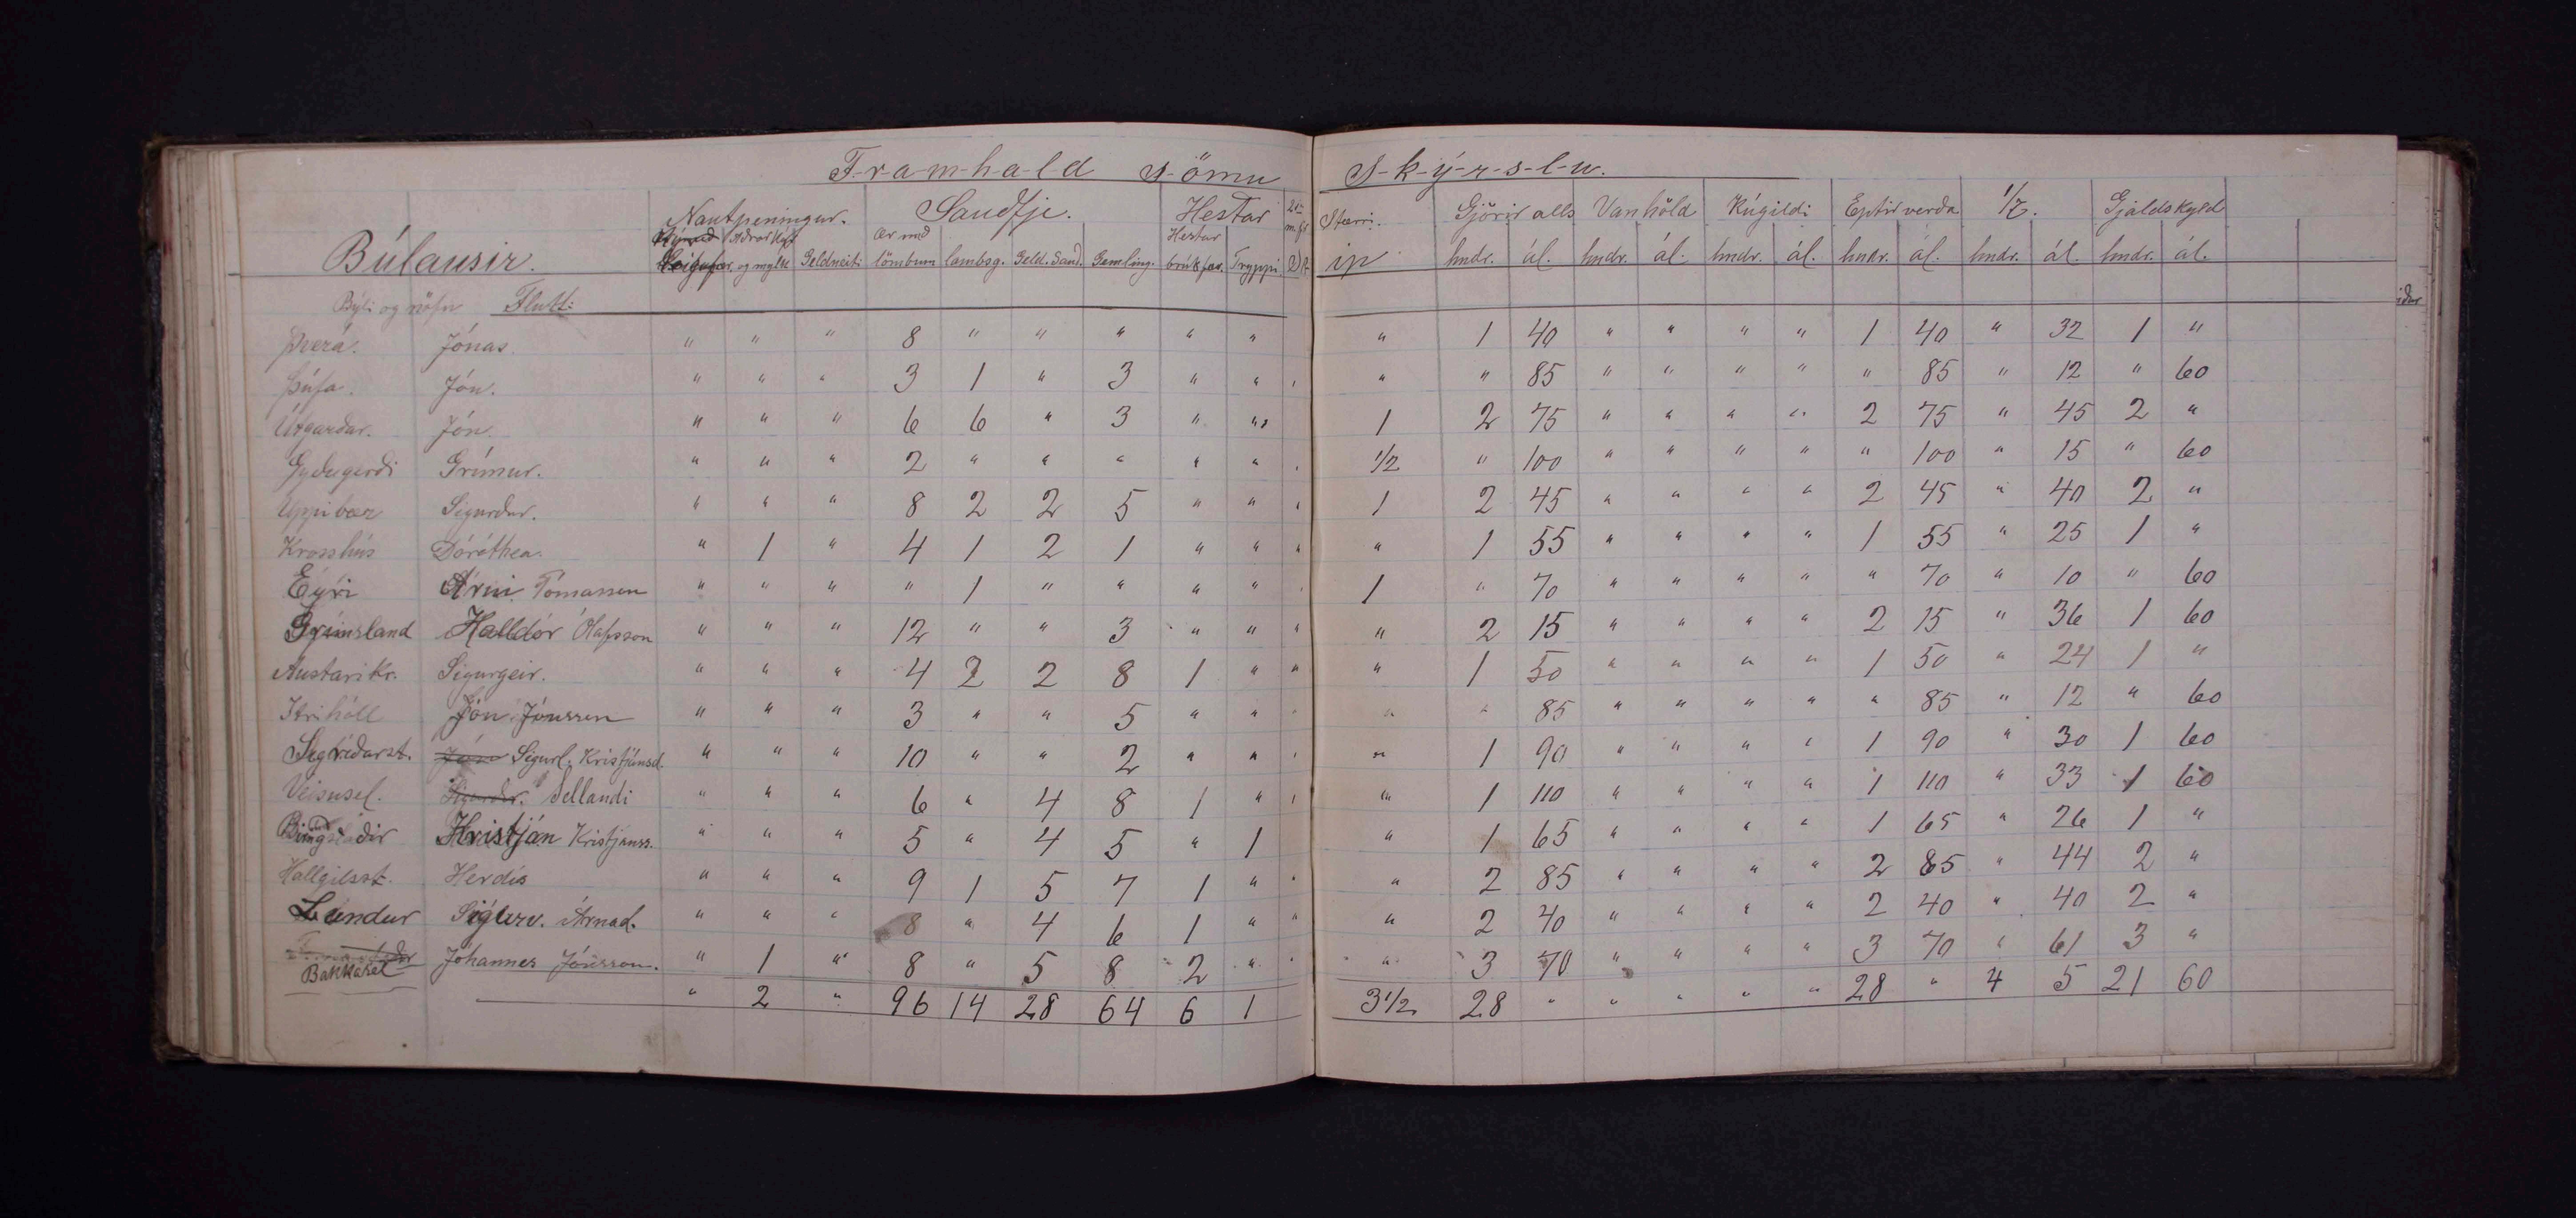 F-r-a-m-h-a-l-d s-ömu S-k-ý-r-s-l-u.
Nautpeningur. Sauðfje. Hestar Stærri Gjörir alls Vanhöld Kúgildi Eptir verða 1/7. Gjaldskyld
Búlausir. Aðrar kýr og mylk Geldneiti Ær með lömbum lambsg. Geld. Sauð. Gemling. Hestar brúk fær. Tryppi ip hndr. ál. hndr. ál. hndr. ál. hndr. ál. hndr. ál. hndr. ál.
Býli og nöfn Flutt:
Þverá. Jónas. " " " 8 " " " " " " 1 40 " " " " 1 40 " 32 1 "
Þúfa. Jón. " " " 3 1 " 3 " " " " 85 " " " " " 85 " 12 " 60
Útgarðar. Jón. " " " 6 6 " 3 " " 1 2 75 " " " " 2 75 " 45 2 "
Gyðugerði Grímur. " " " 2 " " " " " 1/2 " 100 " " " " " 100 " 15 " 60
Uppibær Sigurður. " " " 8 2 2 5 " " 1 2 45 " " " " 2 45 " 40 2 "
Krosshús Dóróthea. " 1 " 4 1 2 1 " " " " 1 55 " " " " 1 55 " 25 1 "
Eýri Árni Tómassen " " " " 1 " " " " 1 " 70 " " " " " 70 " 10 " 60
Grímsland Halldór Ólafsson " " " 12 " " 3 " " " " 2 15 " " " " 2 15 " 36 1 60
Austarikr. Sigurgeir. " " " 4 2 2 8 1 " " " 1 50 " " " " 1 50 " 24 1 "
Ytrihóll Jón Jónssen " " " 3 " " 5 " " " " " 85 " " " " " 85 " 12 " 60
Sigríðarst. Jón Sigurl. Kristjánsd. " " " 10 " " 2 " " " 1 90 " " " " 1 90 " 30 1 60
Veisusel. Sigurður. Sellandi " " " 6 " 4 8 1 " " 1 110 " " " " 1 110 " 33 1 60
Kristján Kristjánss. " " " 5 " 4 5 " 1 " 1 65 " " " " 1 65 " 26 1 "
Hallgilsst. Herdís " " " 9 1 5 7 1 " " " 2 85 " " " " 2 85 " 44 2 "
Lundur Sigurv. Árnad. " " " 8 " 4 6 1 " " " 2 40 " " " " 2 40 " 40 2 "
Bakkasel Jóhannes Jónsson. " 1 " 8 " 5 8 2 " " " 3 70 " " " " 3 70 " 61 3 "
" 2 " 96 14 28 64 6 1 3 1/2 28 " " " " " 28 " 4 5 21 60